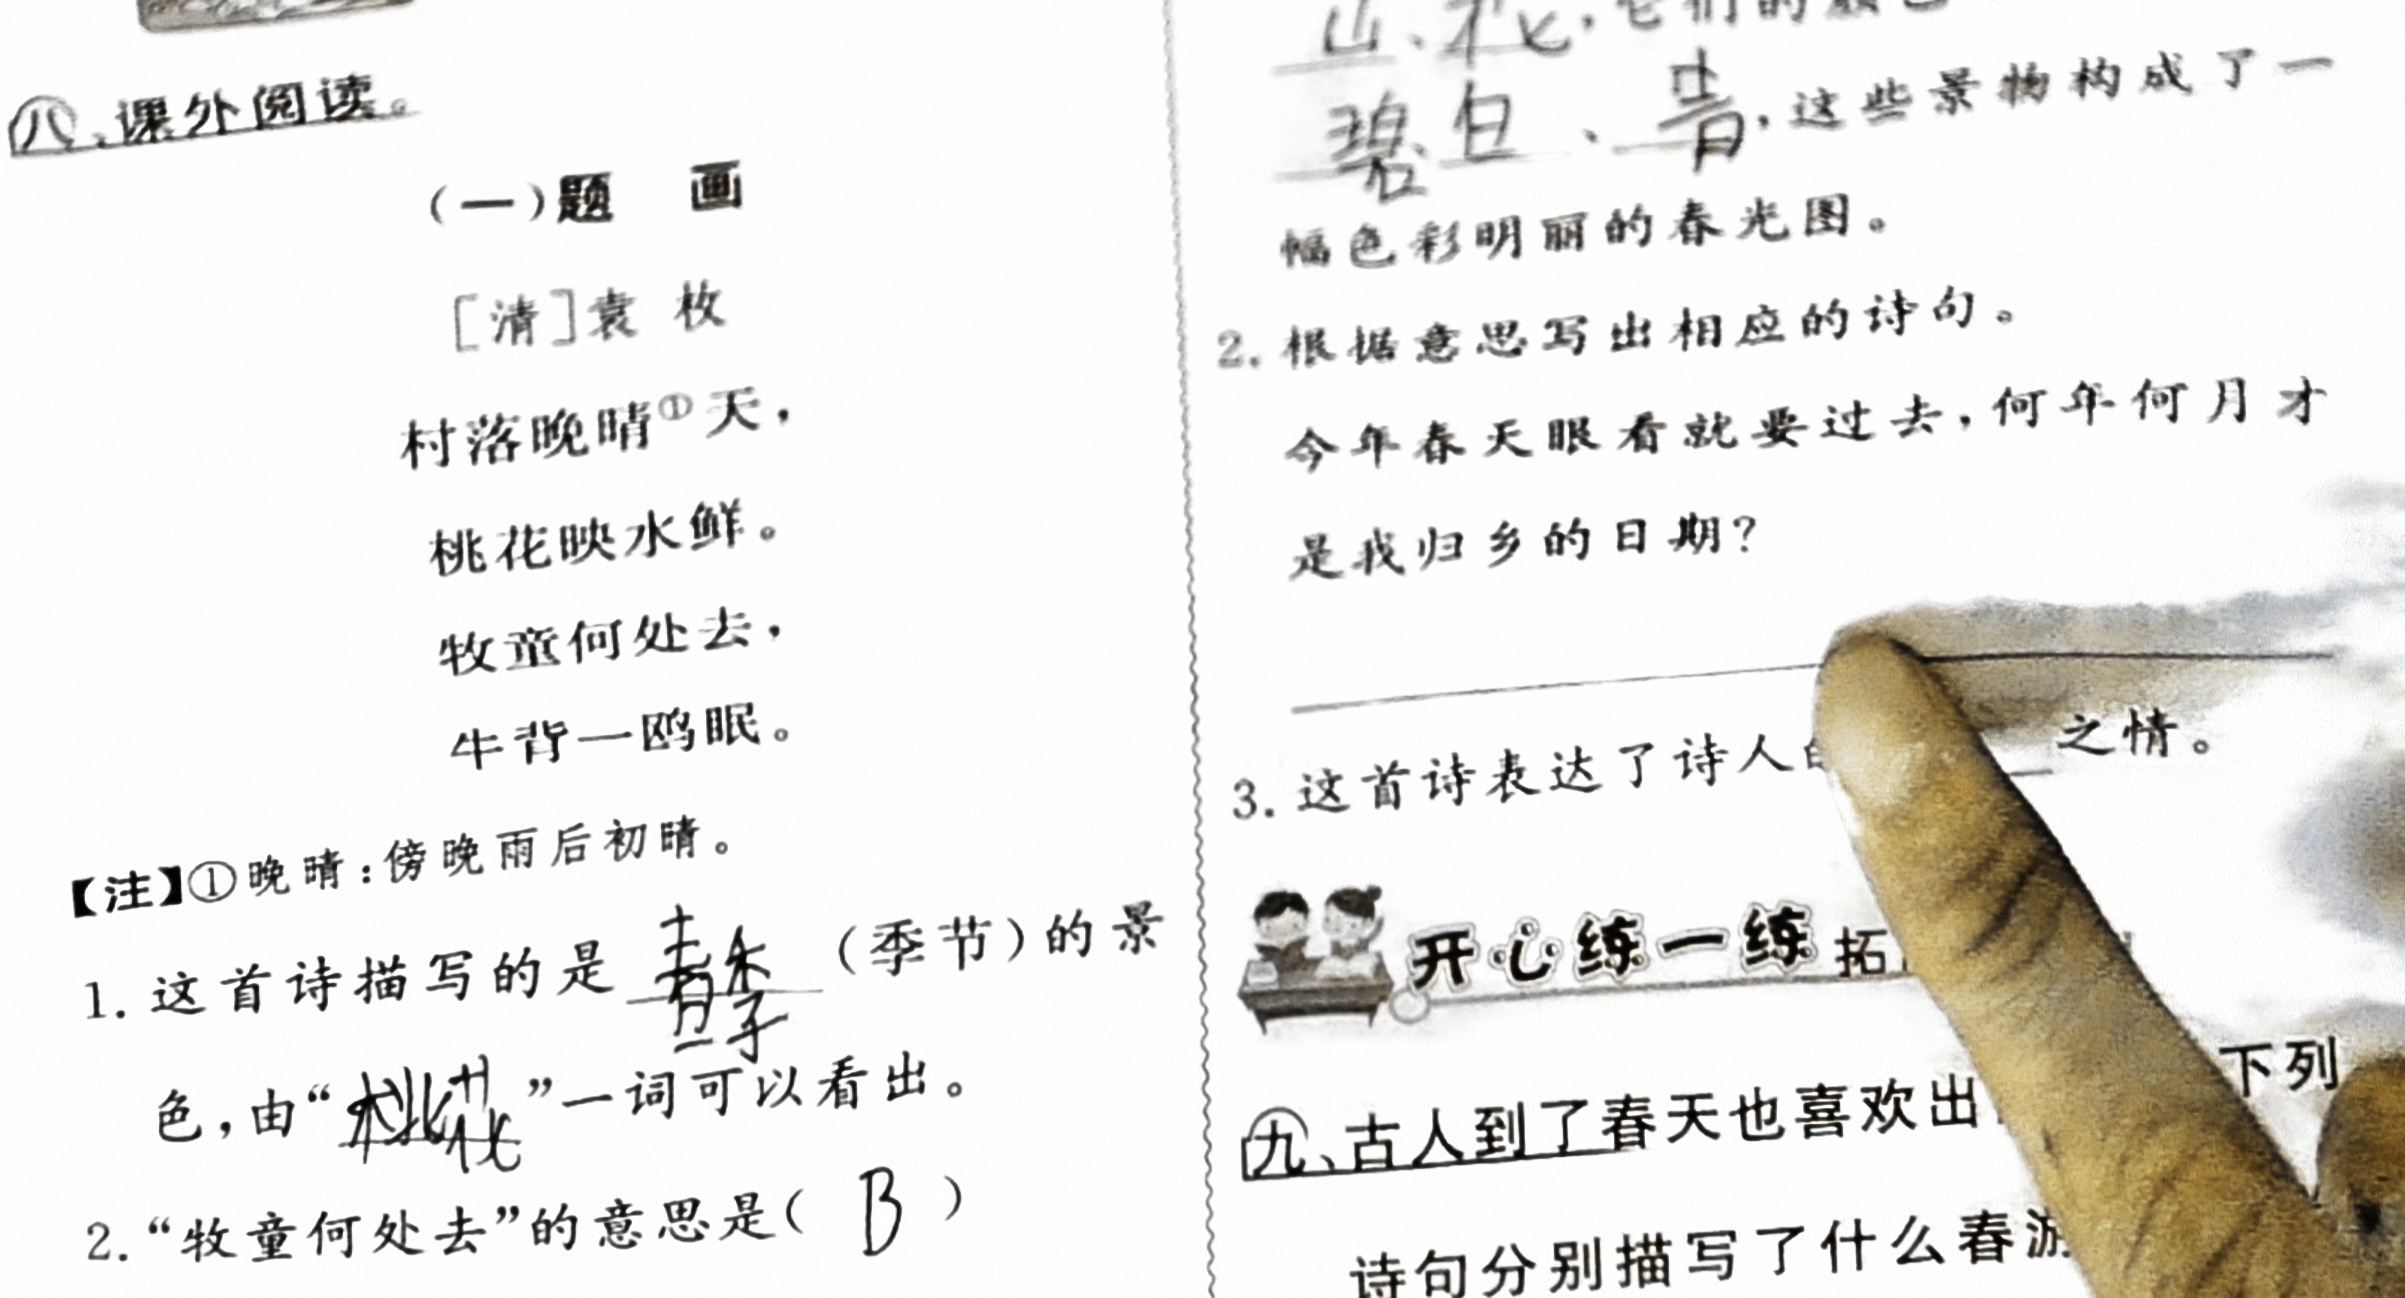 八、课外阅读。
(一)题 画
[清]袁 枚
村落晚晴①天，
桃花映水鲜。
牧童何处去，
牛背一鸥眠。
【注】①晚晴：傍晚雨后初晴。
1. 这首诗描写的是 春季 (季节)的景
色，由“桃花”一词可以看出。
2.“牧童何处去”的意思是( B )
山、花，它们的颜色
碧、白、青，这些景物构成了一
幅色彩明丽的春光图。
2. 根据意思写出相应的诗句。
今年春天眼看就要过去，何年何月才
是我归乡的日期？
3. 这首诗表达了诗人 之情。
开心练一练 拓
九、古人到了春天也喜欢出 下列
诗句分别描写了什么春游